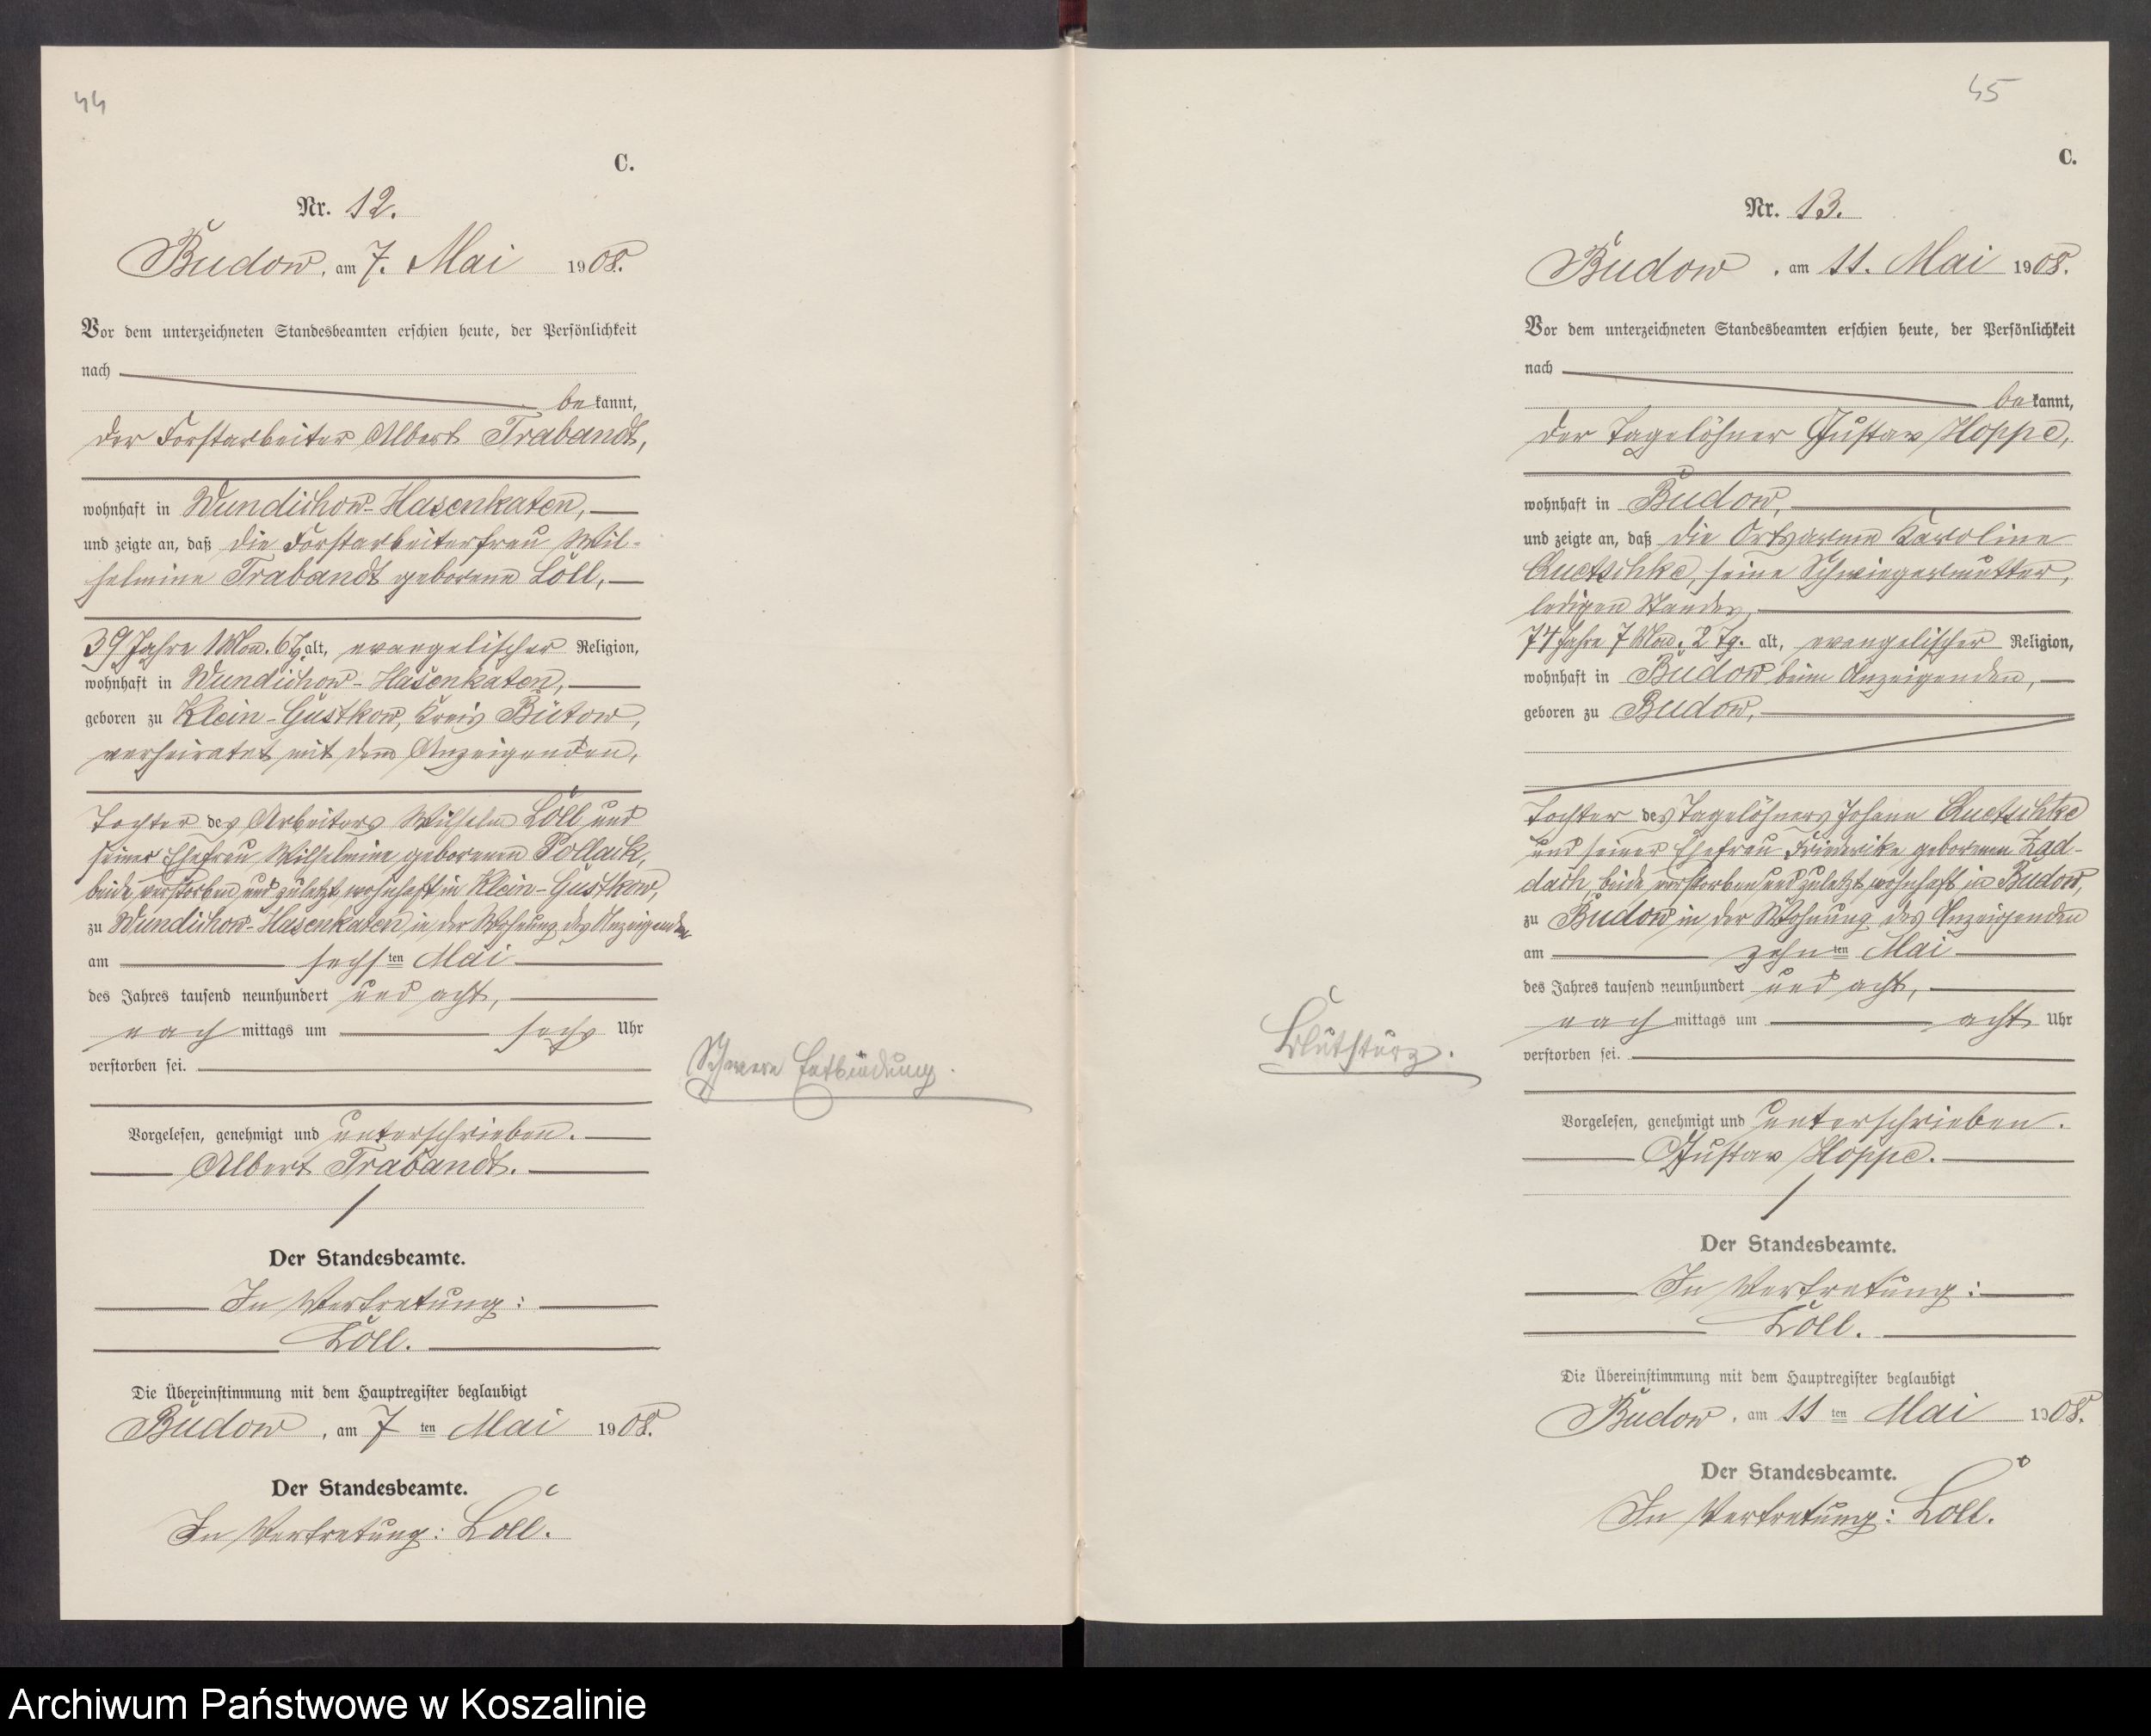 44
C.
Nr. 12.
Budow, am 7. Mai 1908.
Vor dem unterzeichneten Standesbeamten erschien heute, der Persönlichkeit
nach
bekannt,
der Forstarbeiter Albert Trabandt,
wohnhaft in Wundichow-Hasenkaten,
und zeigte an, daß die Forstarbeiterfrau Wil-
helmine Trabandt geborene Löll,
39 Jahre 1 Mon. 6 Tg alt, evangelischer Religion,
wohnhaft in Wundichow-Hasenkaten,
geboren zu Klein-Gustkow, Kreis Bütow,
verheiratet mit dem Anzeigenden,
Tochter des Arbeiters Wilhelm Löll und
seiner Ehefrau Wilhelmine geborenen Pollack,
beide verstorben und zuletzt wohnhaft in Klein-Gustkow,
zu Wundichow-Hasenkaten in der Wohnung des Anzeigenden
am sechsten Mai
des Jahres tausend neunhundert und acht,
nachmittags um sechs Uhr
verstorben sei.
Schwere Entbindung.
Vorgelesen, genehmigt und unterschrieben.
Albert Trabandt.
Der Standesbeamte.
In Vertretung:
Löll.
Die Übereinstimmung mit dem Hauptregister beglaubigt
Budow, am 7 ten Mai 1908.
Der Standesbeamte.
In Vertretung: Löll.
45
C.
Nr. 13.
Budow, am 11. Mai 1908.
Vor dem unterzeichneten Standesbeamten erschien heute, der Persönlichkeit
nach
bekannt,
der Tagelöhner Gustav Hoppe,
wohnhaft in Budow,
und zeigte an, daß die Ortsarme Karoline
Quetschke, seine Schwiegermutter,
ledigen Standes,
74 Jahre 7 Mon. 2 Tg. alt, evangelischer Religion,
wohnhaft in Budow beim Anzeigenden,
geboren zu Budow,
Tochter des Tagelöhners Johann Quetschke
und seiner Ehefrau Friederike geborenen Zad-
dach, beide verstorben und zuletzt wohnhaft in Budow,
zu Budow in der Wohnung des Anzeigenden
am zehnten Mai
des Jahres tausend neunhundert und acht,
nachmittags um acht Uhr
verstorben sei.
Blutsturz.
Vorgelesen, genehmigt und unterschrieben.
Gustav Hoppe.
Der Standesbeamte.
In Vertretung:
Löll.
Die Übereinstimmung mit dem Hauptregister beglaubigt
Budow, am 11 ten Mai 1908.
Der Standesbeamte.
In Vertretung: Löll.
Archiwum Państwowe w Koszalinie